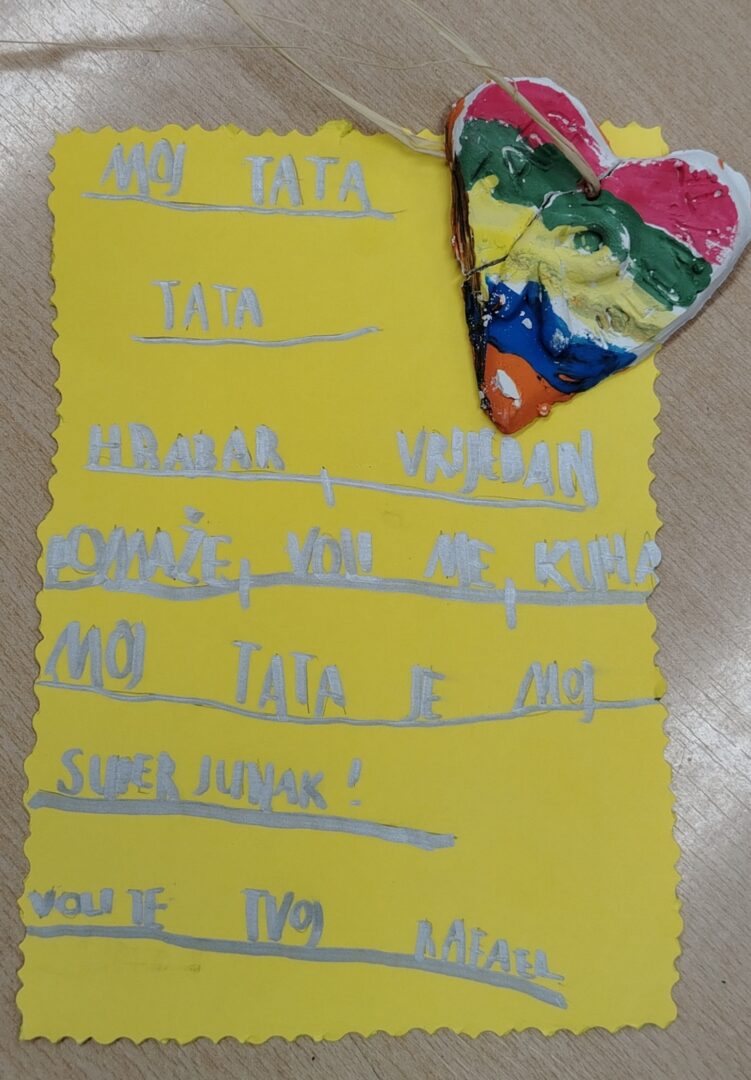 MOJ TATA
TATA
HRABAR, VRIJEDAN
POMAŽE, VOLI ME, KUHA
MOJ TATA JE MOJ
SUPER JUNAK!
VOLI TE TVOJ RAFAEL